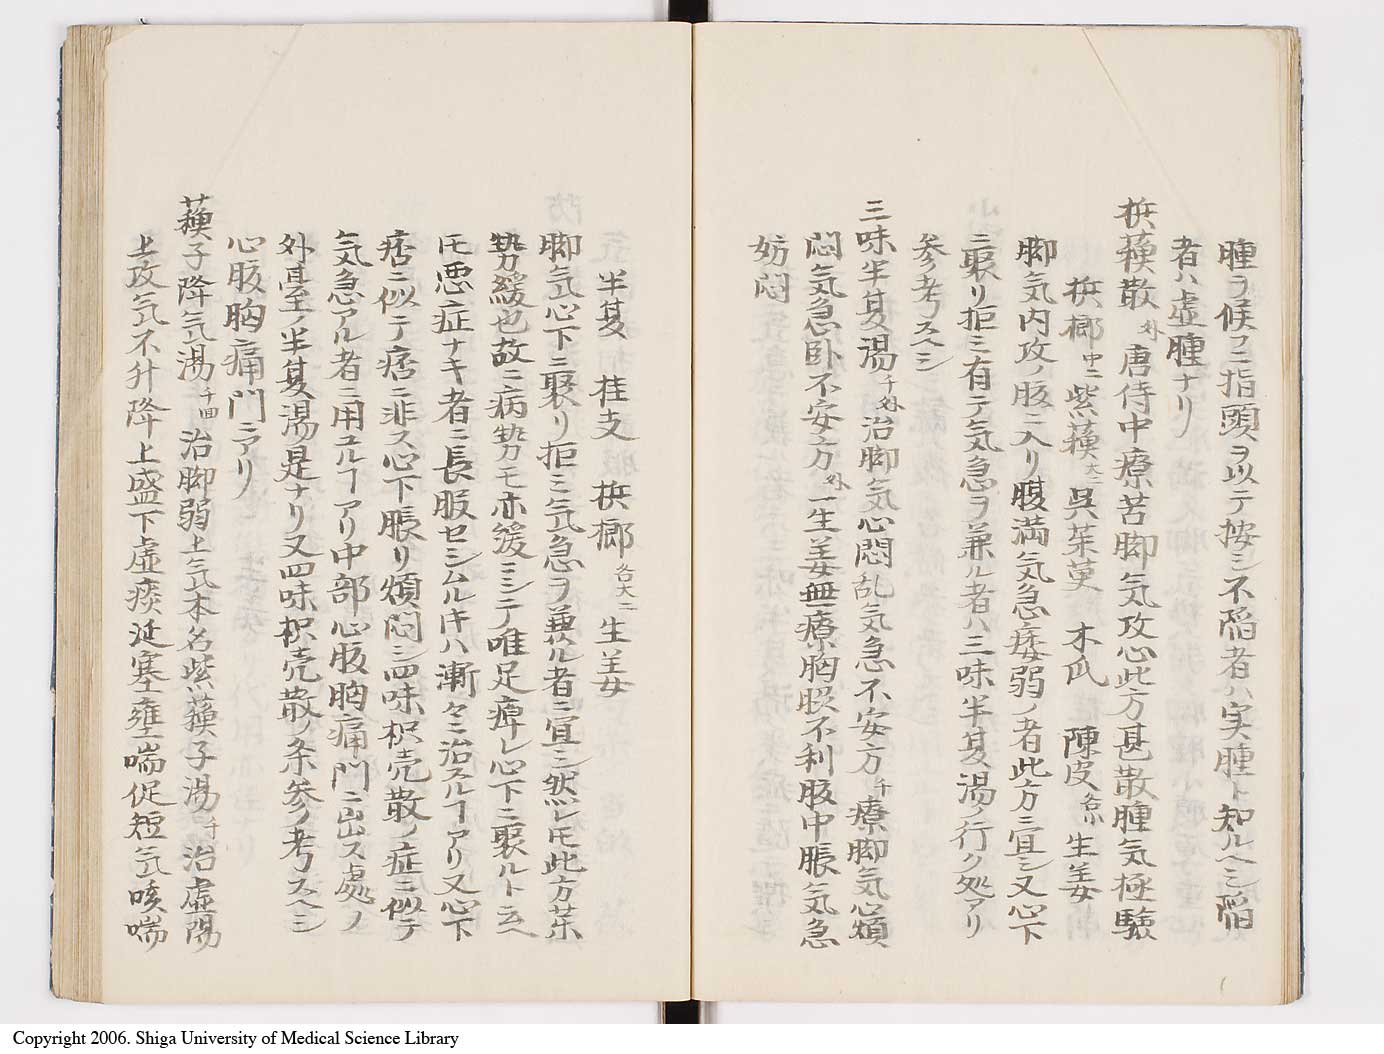 腫ヲ候フニ指頭ヲ以テ按シ不陷者ハ実腫ト知ルヘシ陷
者ハ虚腫ナリ
梹蘓散 外 唐侍中療苦脚气攻心此方甚散腫气極驗
梹榔 中二 紫蘓 大二 呉茱萸 木瓜 陳皮 各小 生姜
脚气内攻ノ胘ニ入リ腹満气急痿弱ノ者此方ニ宜シ又心下
ニ聚リ拒ミ有テ气急ヲ兼ル者ハ三味半夏湯ノ行ク処アリ
参考スヘシ
三味半夏湯 千 外 治脚气心悶乱气急不安方 千 療脚气心煩
悶气急卧不安方 外 一生姜無療胸脇不利胘中脹气急
妨悶
半夏 桂支 梹榔 各大二 生姜
脚气心下ニ聚リ拒ミ气急ヲ兼ル者ニ宜シ然レ𪜈此方茱
勢力緩也故ニ病勢モ亦緩ミシテ唯足痺レ心下ニ聚ルト云
𪜈悪症ナキ者ニ長服セシムルキハ漸々ニ治スルヿアリ又心下
痞ニ似テ痞ニ非ス心下脹リ煩悶シ四味枳壳散ノ症ニ似テ
气急アル者ニ用ユルヿアリ中部心胘胸痛門ニ出ス處ノ
外臺ノ半夏湯是ナリ又四味枳壳散ノ条参ノ考フスヘシ
心胘胸痛門ニアリ
蘓子降气湯 千四 治脚弱上气本名紫蘓子湯 千 治虚陽
上攻气不升降上盛下虚痰涎塞壅喘促短气咳喘
Copyright 2006. Shiga University of Medical Science Library